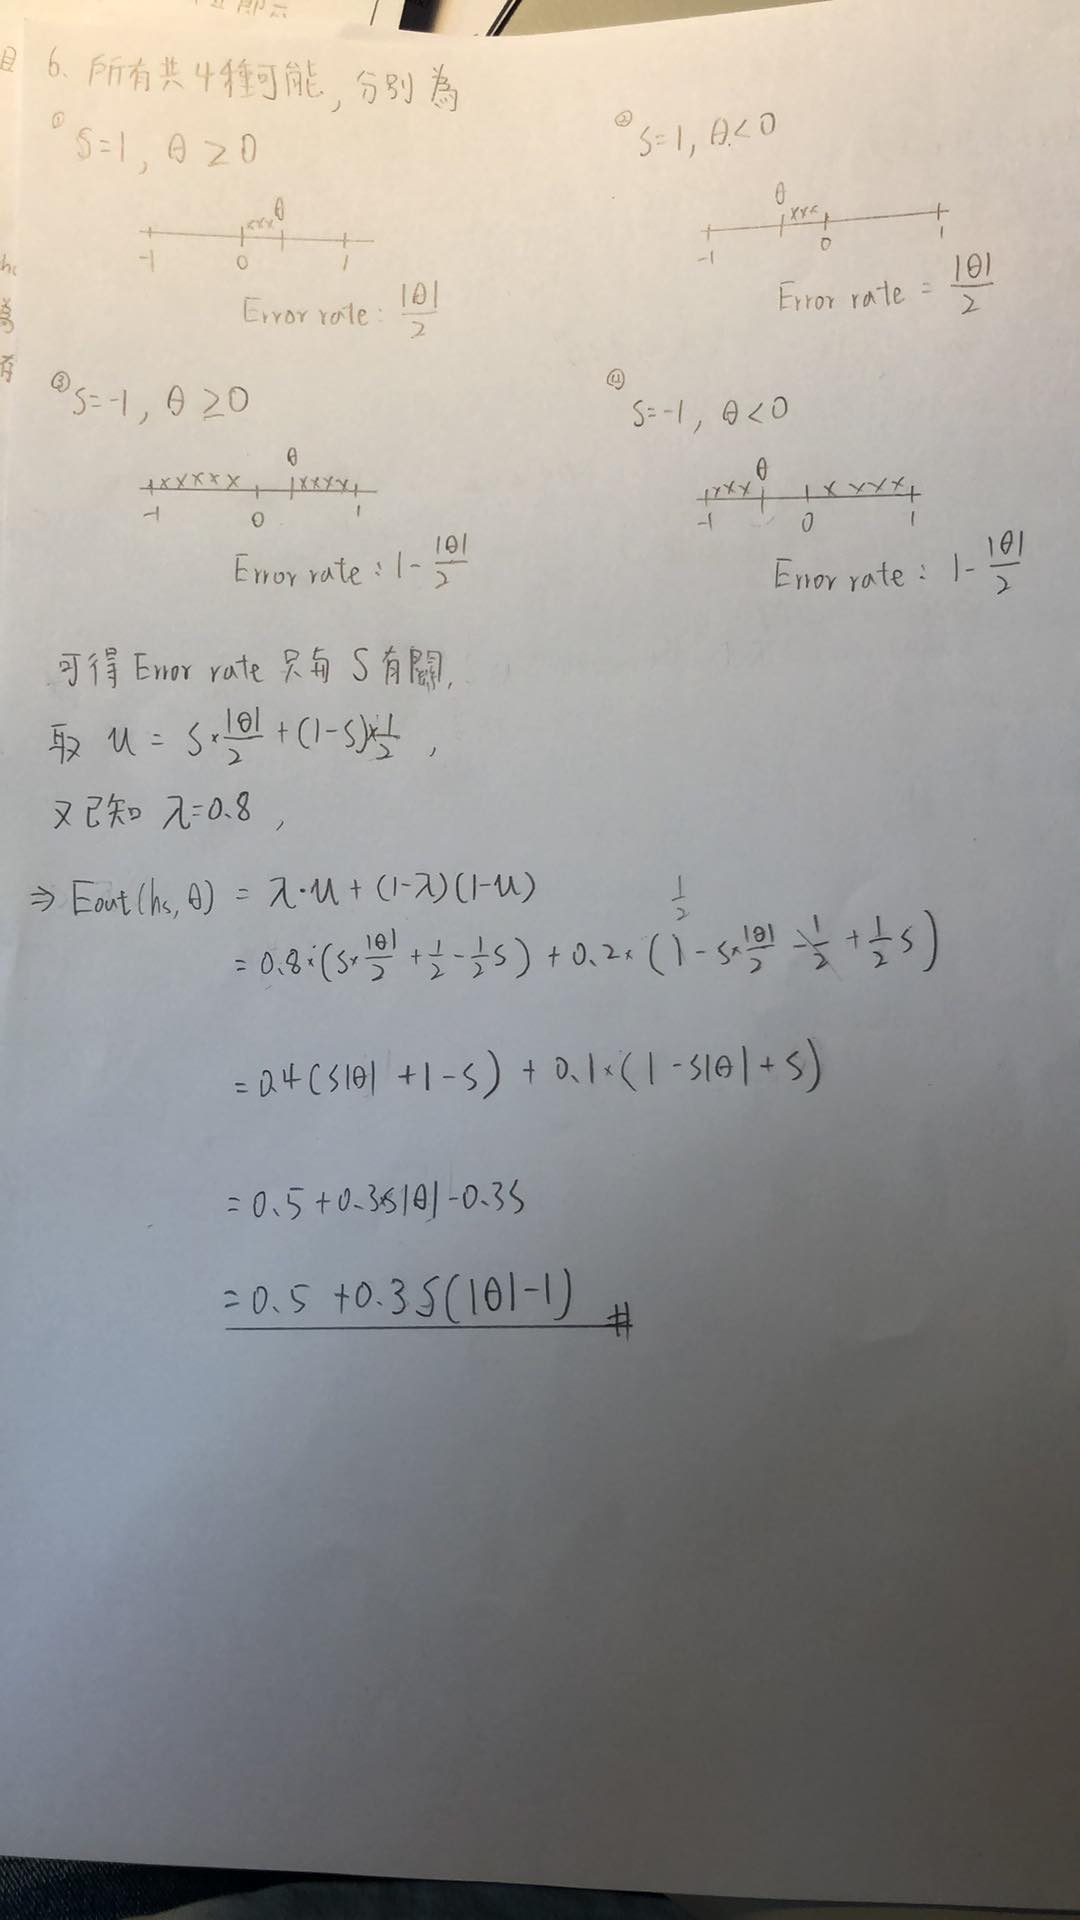 6. 所有共4種可能, 分別為
① S=1, θ ≥ 0
θ
xxx
-1 0 1
Error rate: |θ|/2
② S=1, θ<0
θ
xxx
-1 0 1
Error rate = |θ|/2
③ S=-1, θ ≥0
θ
xxxxx xxxx
-1 0 1
Error rate: 1-|θ|/2
④ S=-1, θ<0
θ
xxx xxxx
-1 0 1
Error rate: 1-|θ|/2
可得 Error rate 只與 S 有關,
取 u = S×|θ|/2+(1-S)×1/2 ,
又已知 λ=0.8 ,
⇒ Eout(hs,θ) = λ·u+(1-λ)(1-u)
1/2
= 0.8·(S×|θ|/2+1/2-1/2S) + 0.2×(1-S×|θ|/2-1/2+1/2S)
=0.4(S|θ|+1-S) + 0.1×(1-S|θ|+S)
=0.5+0.3×S|θ|-0.3S
=0.5+0.3S(|θ|-1) #